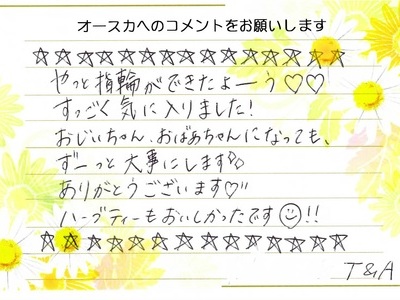 オースカへのコメントをお願いします
☆☆☆☆☆☆☆☆☆☆☆☆☆☆
やっと指輪ができたよーう♡♡
すっごく気に入りました!
おじいちゃん、おばあちゃんになっても、
ずーっと大事にします
ありがとうございます♡
ハーブティーもおいしかったです☺!!
☆☆☆☆☆☆☆☆☆☆☆☆☆☆
T&A